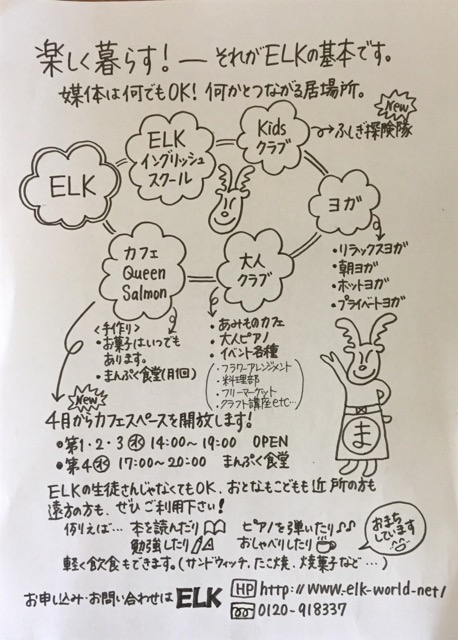 楽しく暮らす！― それがELKの基本です。
媒体は何でもOK！何かとつながる居場所。
ELK
ELK
イングリッシュ
スクール
Kids
クラブ
New
→ふしぎ探険隊
ヨガ
・リラックスヨガ
・朝ヨガ
・ホットヨガ
・プライベートヨガ
大人
クラブ
・あみものカフェ
・大人ピアノ
・イベント各種
(・フラワーアレンジメント
・料理部
・フリーマーケット
・クラフト講座etc…)
カフェ
Queen
Salmon
<手作り>
・お菓子はいつでも
あります。
・まんぷく食堂(月1回)
ま
New
4月からカフェスペースを開放します！
・第1・2・3㊌ 14:00〜19:00 OPEN
・第4㊌ 17:00〜20:00 まんぷく食堂
ELKの生徒さんじゃなくてもOK、おとなもこどもも近所の方も
遠方の方も、ぜひご利用下さい！
例えば… 本を読んだり ピアノを弾いたり♪♪
勉強したり おしゃべりしたり
おまち
しています
軽く飲食もできます。(サンドウィッチ、たこ焼、焼菓子など…)
お申し込み・お問い合わせは ELK
HP http://www.elk-world-net/
0120-918337